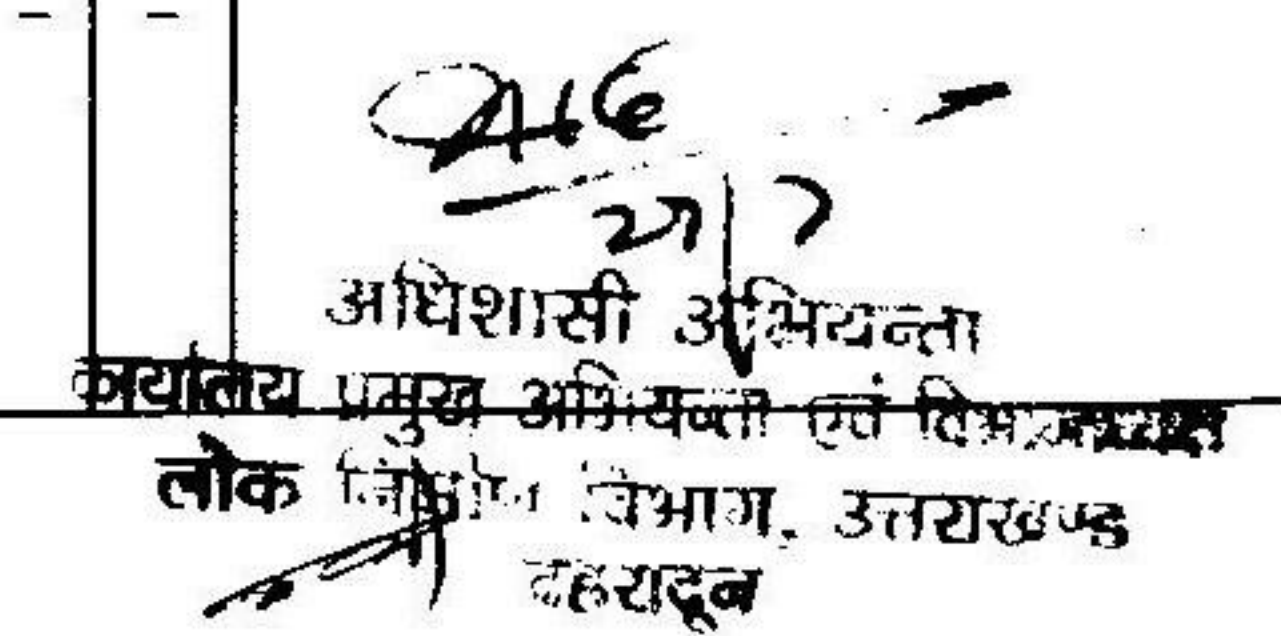 - -
27/7
अधिशासी अभियन्ता
कार्यालय प्रमुख अभियन्ता एवं विभागाध्यक्ष
लोक निर्माण विभाग, उत्तराखण्ड
देहरादून